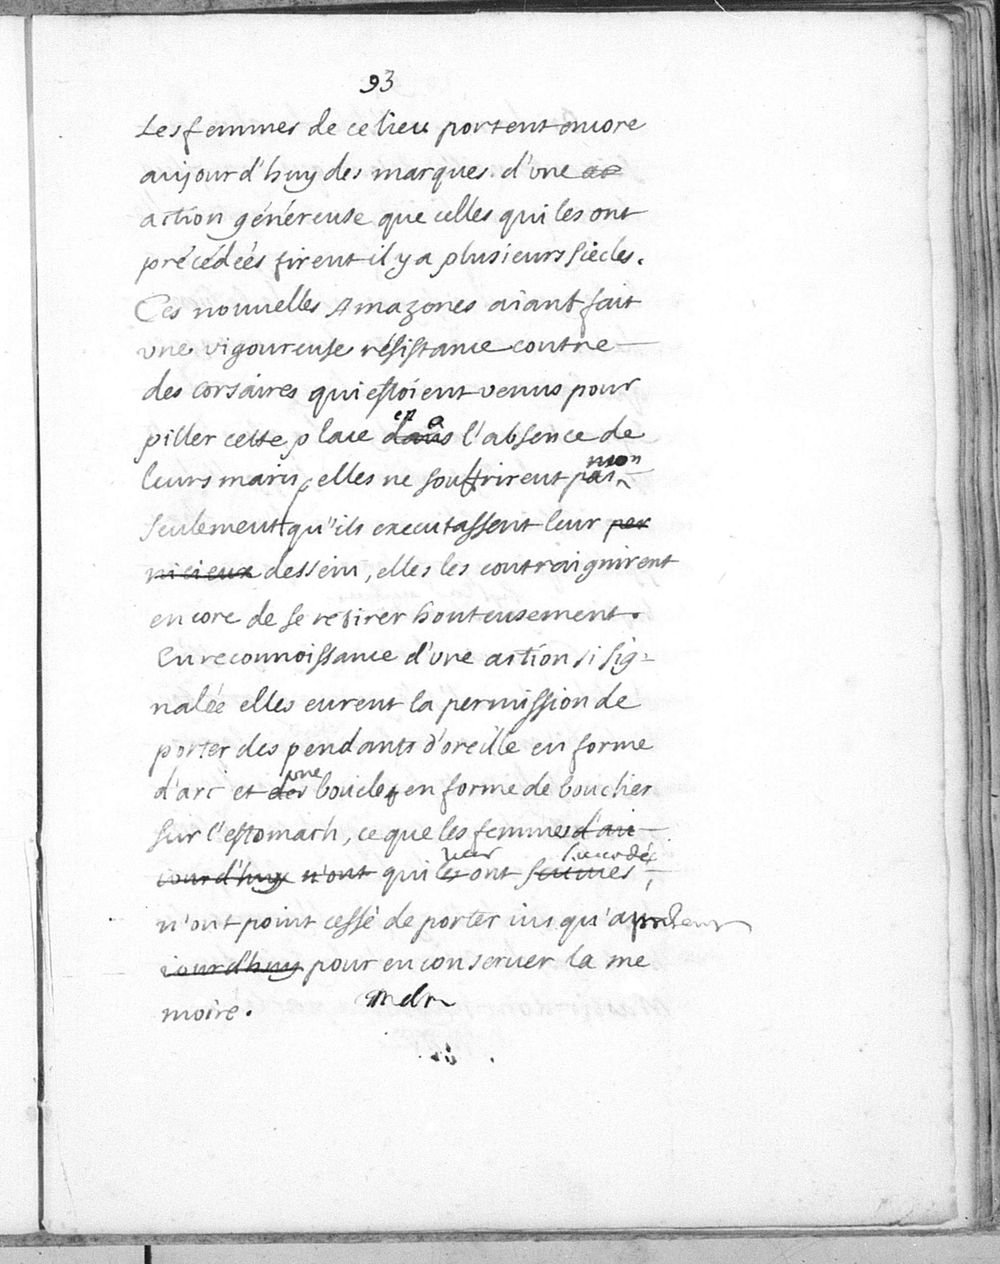 93
Les femmes de ce lieu portent encore
aujourd'huy des marques d'une ac
action généreuse que celles qui les ont
précédées firent il y a plusieurs siècles.
Ces nouvelles Amazones aiant fait
vne vigoureuse résistance contre
des corsaires qui estoient venus pour
piller cette place dans en l'absence de
leurs maris, elles ne souffrirent pas non
seulement qu'ils executassent leur per
nicieux dessein, elles les contraignirent
encore de se retirer honteusement.
En reconnoissance d'vne action si sig=
nalée elles eurent la permission de
porter des pendants d'oreille en forme
d'arc et des vne boucle en forme de bouclier
sur l'estomach, ce que les femmes d'au
iourd'huy n'ont qui les leur ont suivies succedé,
n'ont point cessé de porter iusqu'a present
iourd'huy pour en conserver la me
moire.